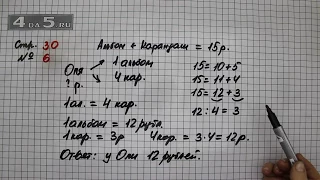 4DA5.RU
Стр. 30
№ 6
Альбом + Карандаш = 15р.
Оля
? р.
1 альбом
4 кар.
15 = 10 + 5
15 = 11 + 4
15 = 12 + 3
12 : 4 = 3
1 ал. = 4 кар.
1 альбом = 12 рубл.
1 кар. = 3р 4 кар. = 3·4 = 12р.
Ответ: у Оли 12 рублей.